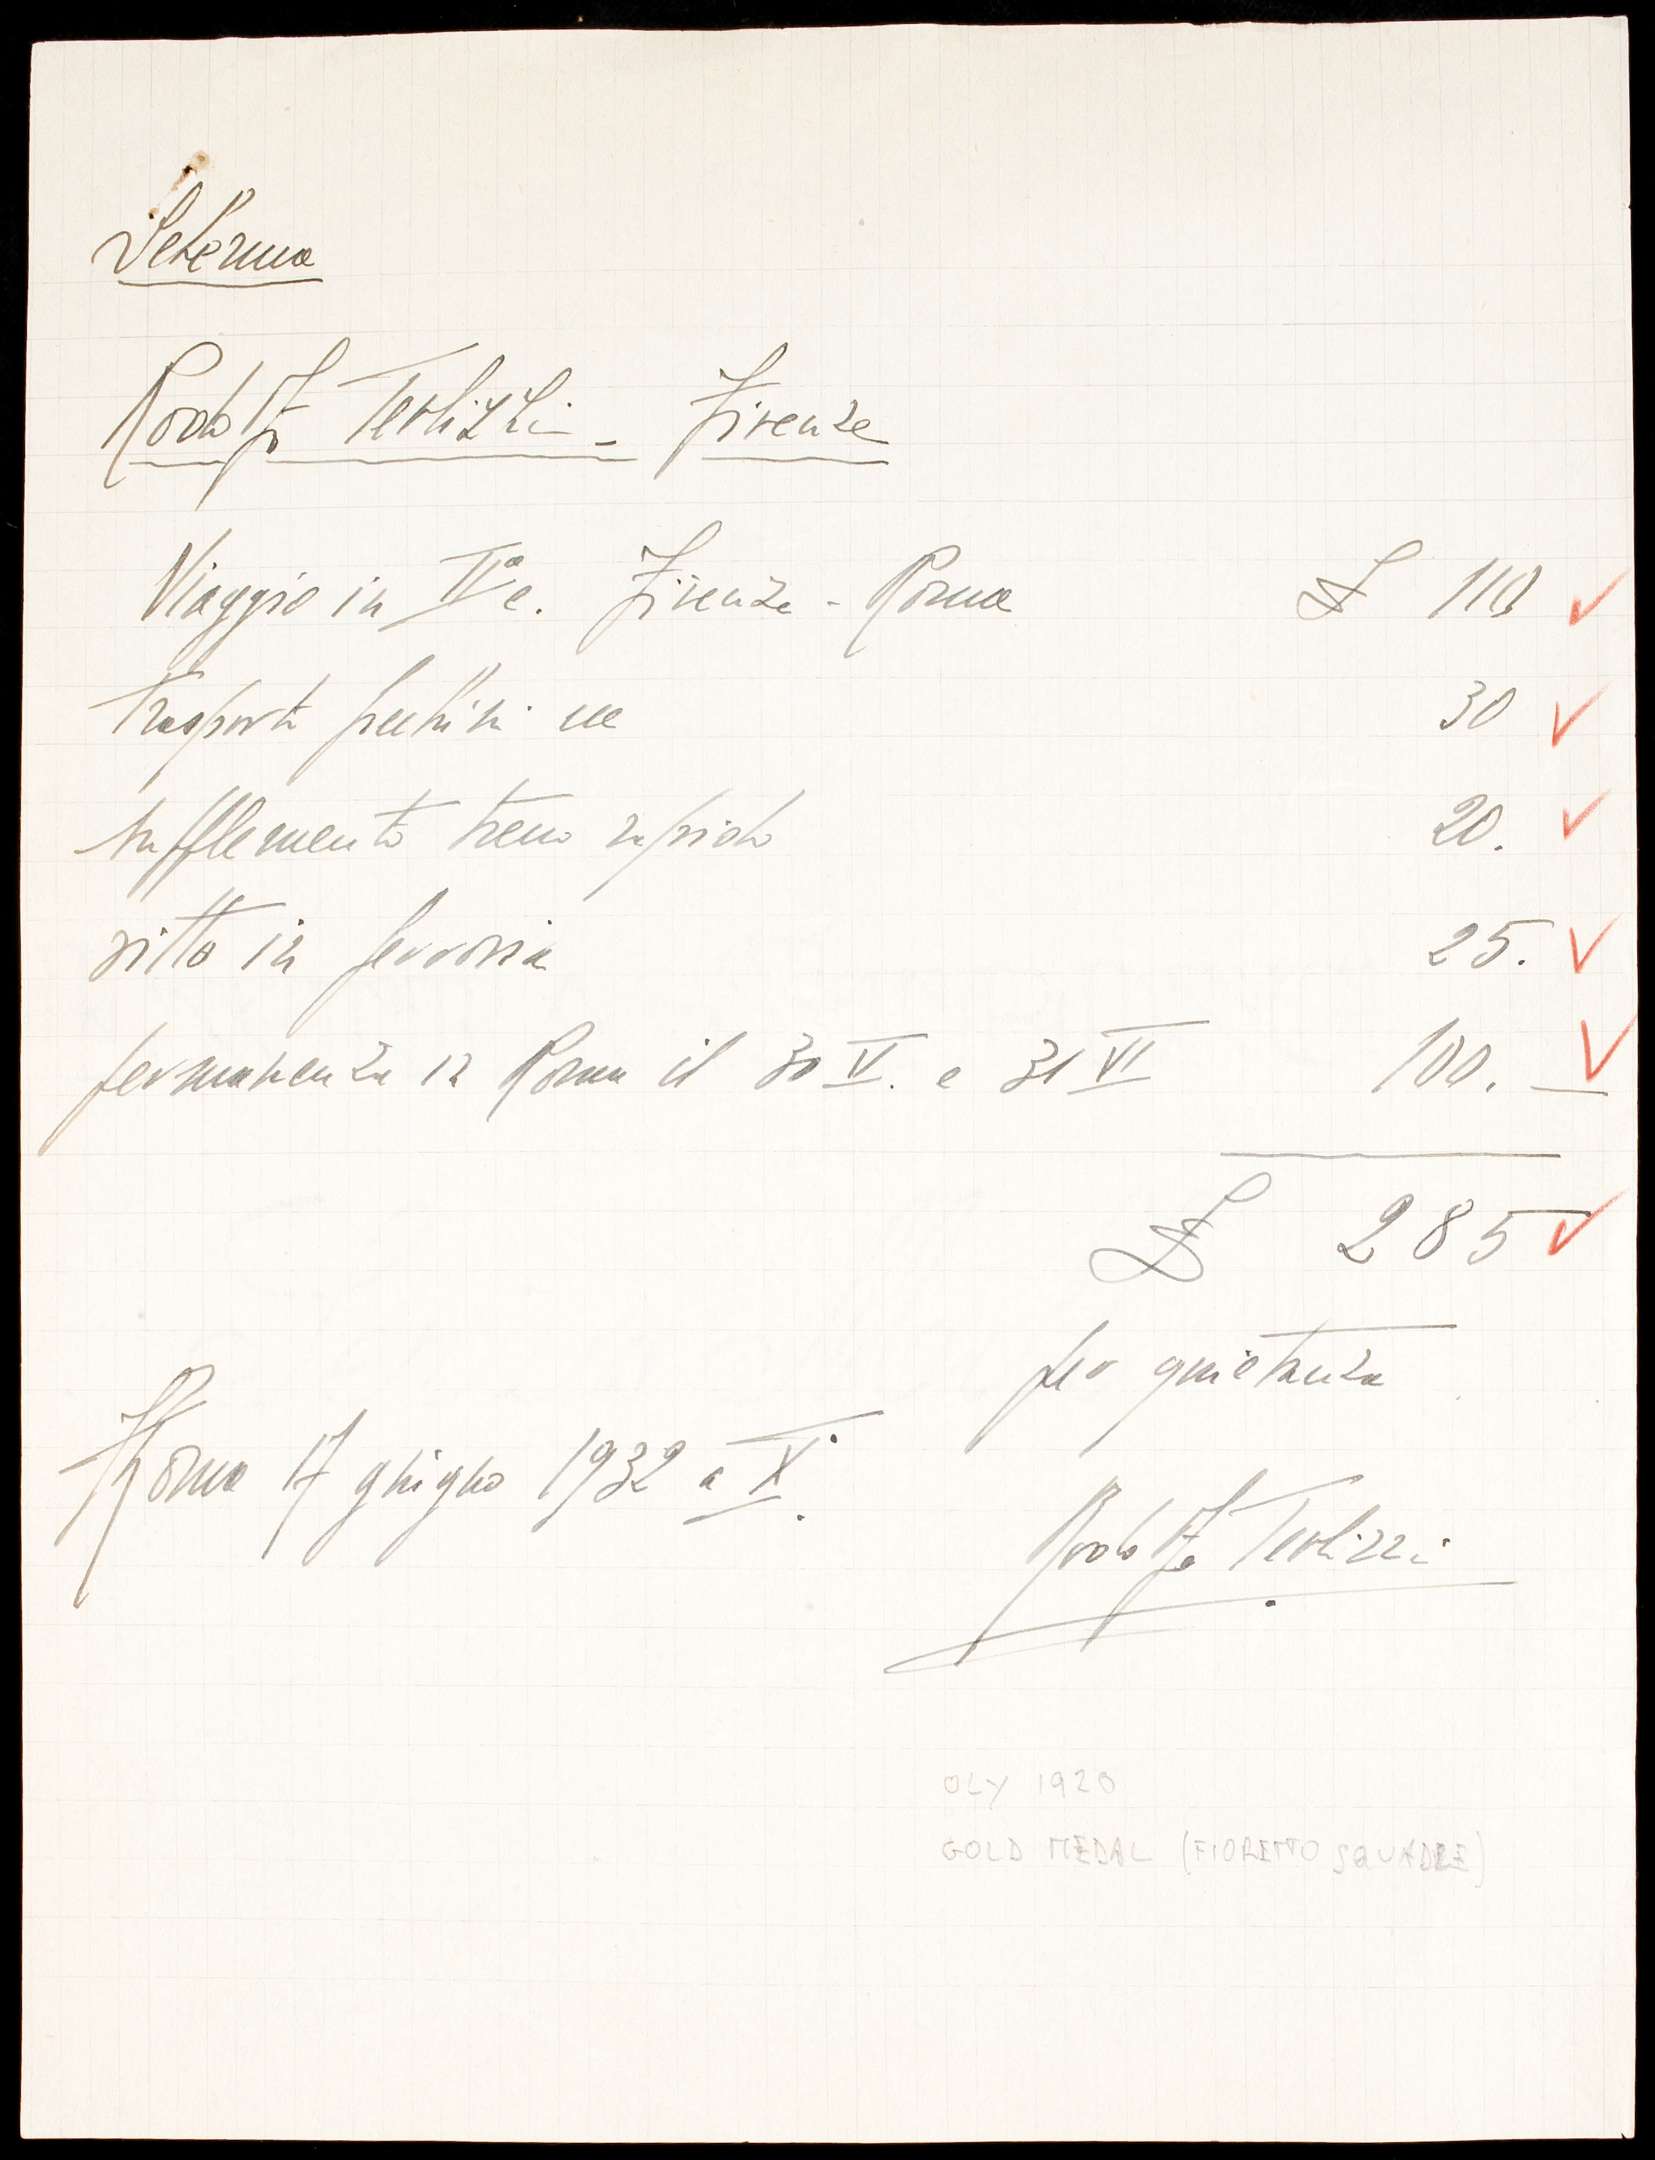 Rodolfo Terlizzi - Firenze
Viaggio in IIª c. Firenze - Roma £ 110
trasporto facchini ecc 30
supplemento treno rapido 20.
vitto in ferrovia 25.
permanenza in Roma il 30 V. e 31 VI 100.
£ 285
per quietanza
Roma 17 giugno 1932 a X.
Rodolfo Terlizzi
OLY 1920
GOLD MEDAL (FIORETTO SQUADRE)